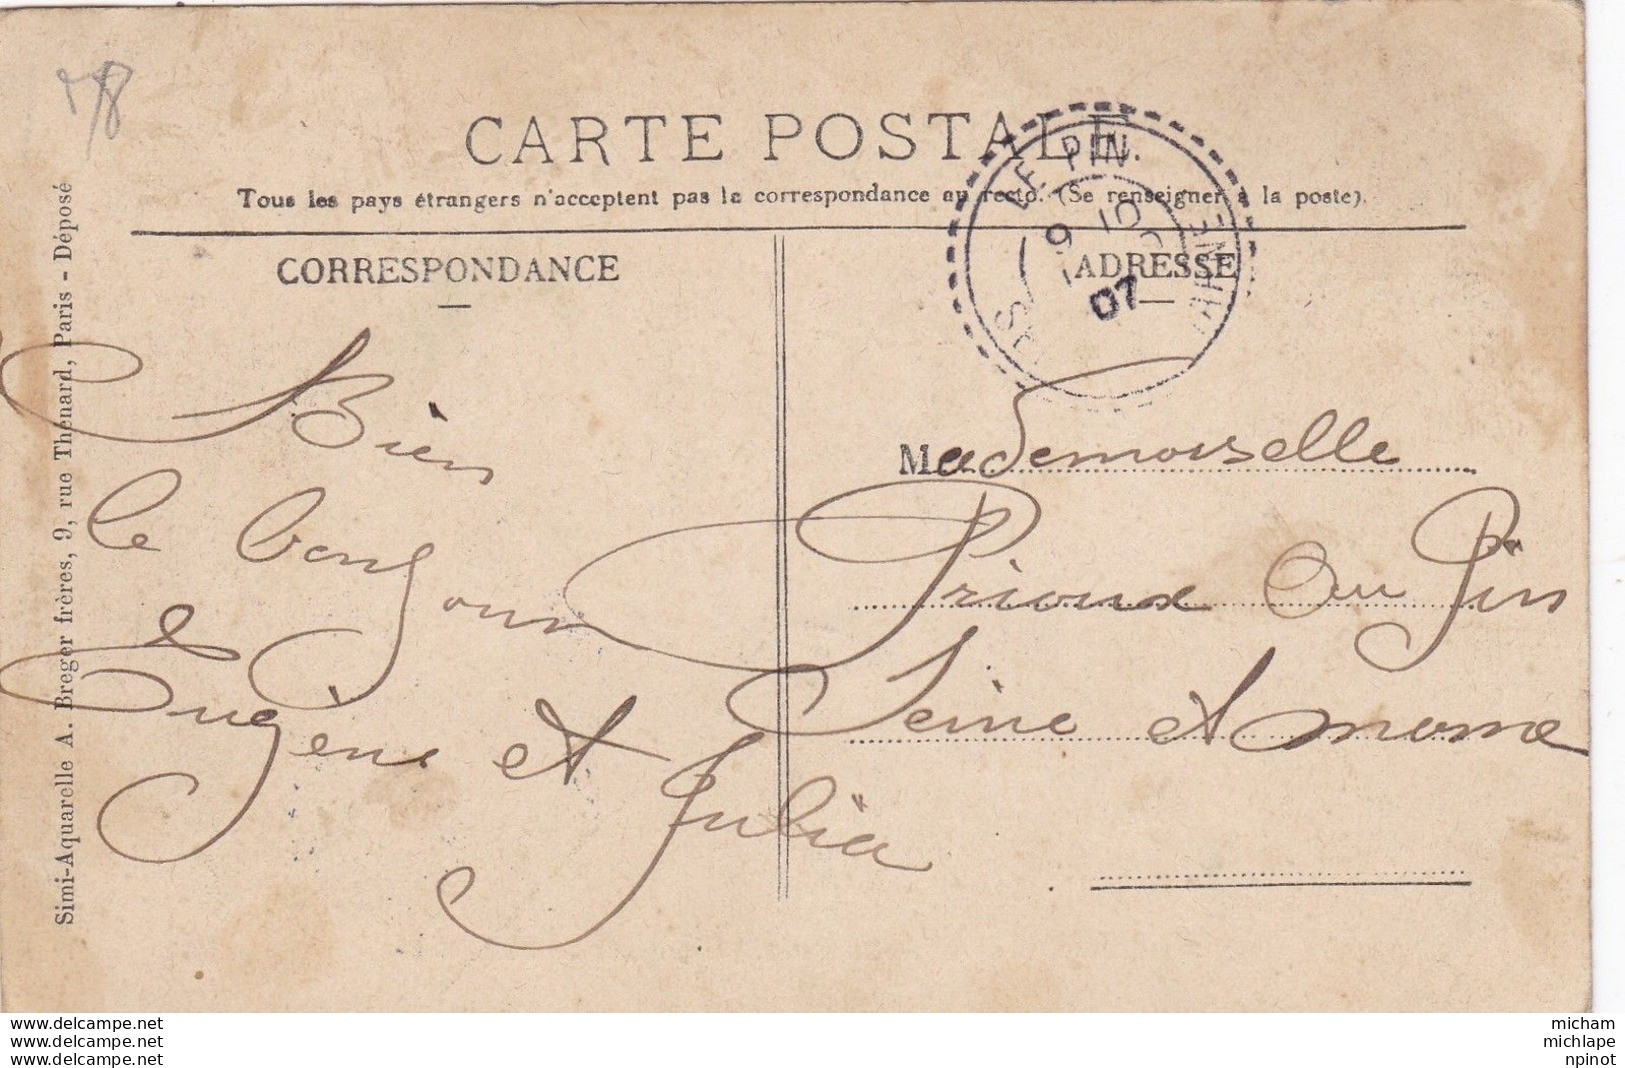 78
CARTE POSTALE.
Tous les pays étrangers n'acceptent pas la correspondance au recto. (Se renseigner à la poste).
CORRESPONDANCE
Bien
le bonjour
Eugène et Julia
ADRESSE
LE PIN
9 10
07
Mademoiselle
Prioux Au Pin
Seine et marne
Simi-Aquarelle A. Breger frères, 9, rue Thénard, Paris - Déposé
www.delcampe.net
www.delcampe.net
www.delcampe.net
micham
michlape
npinot